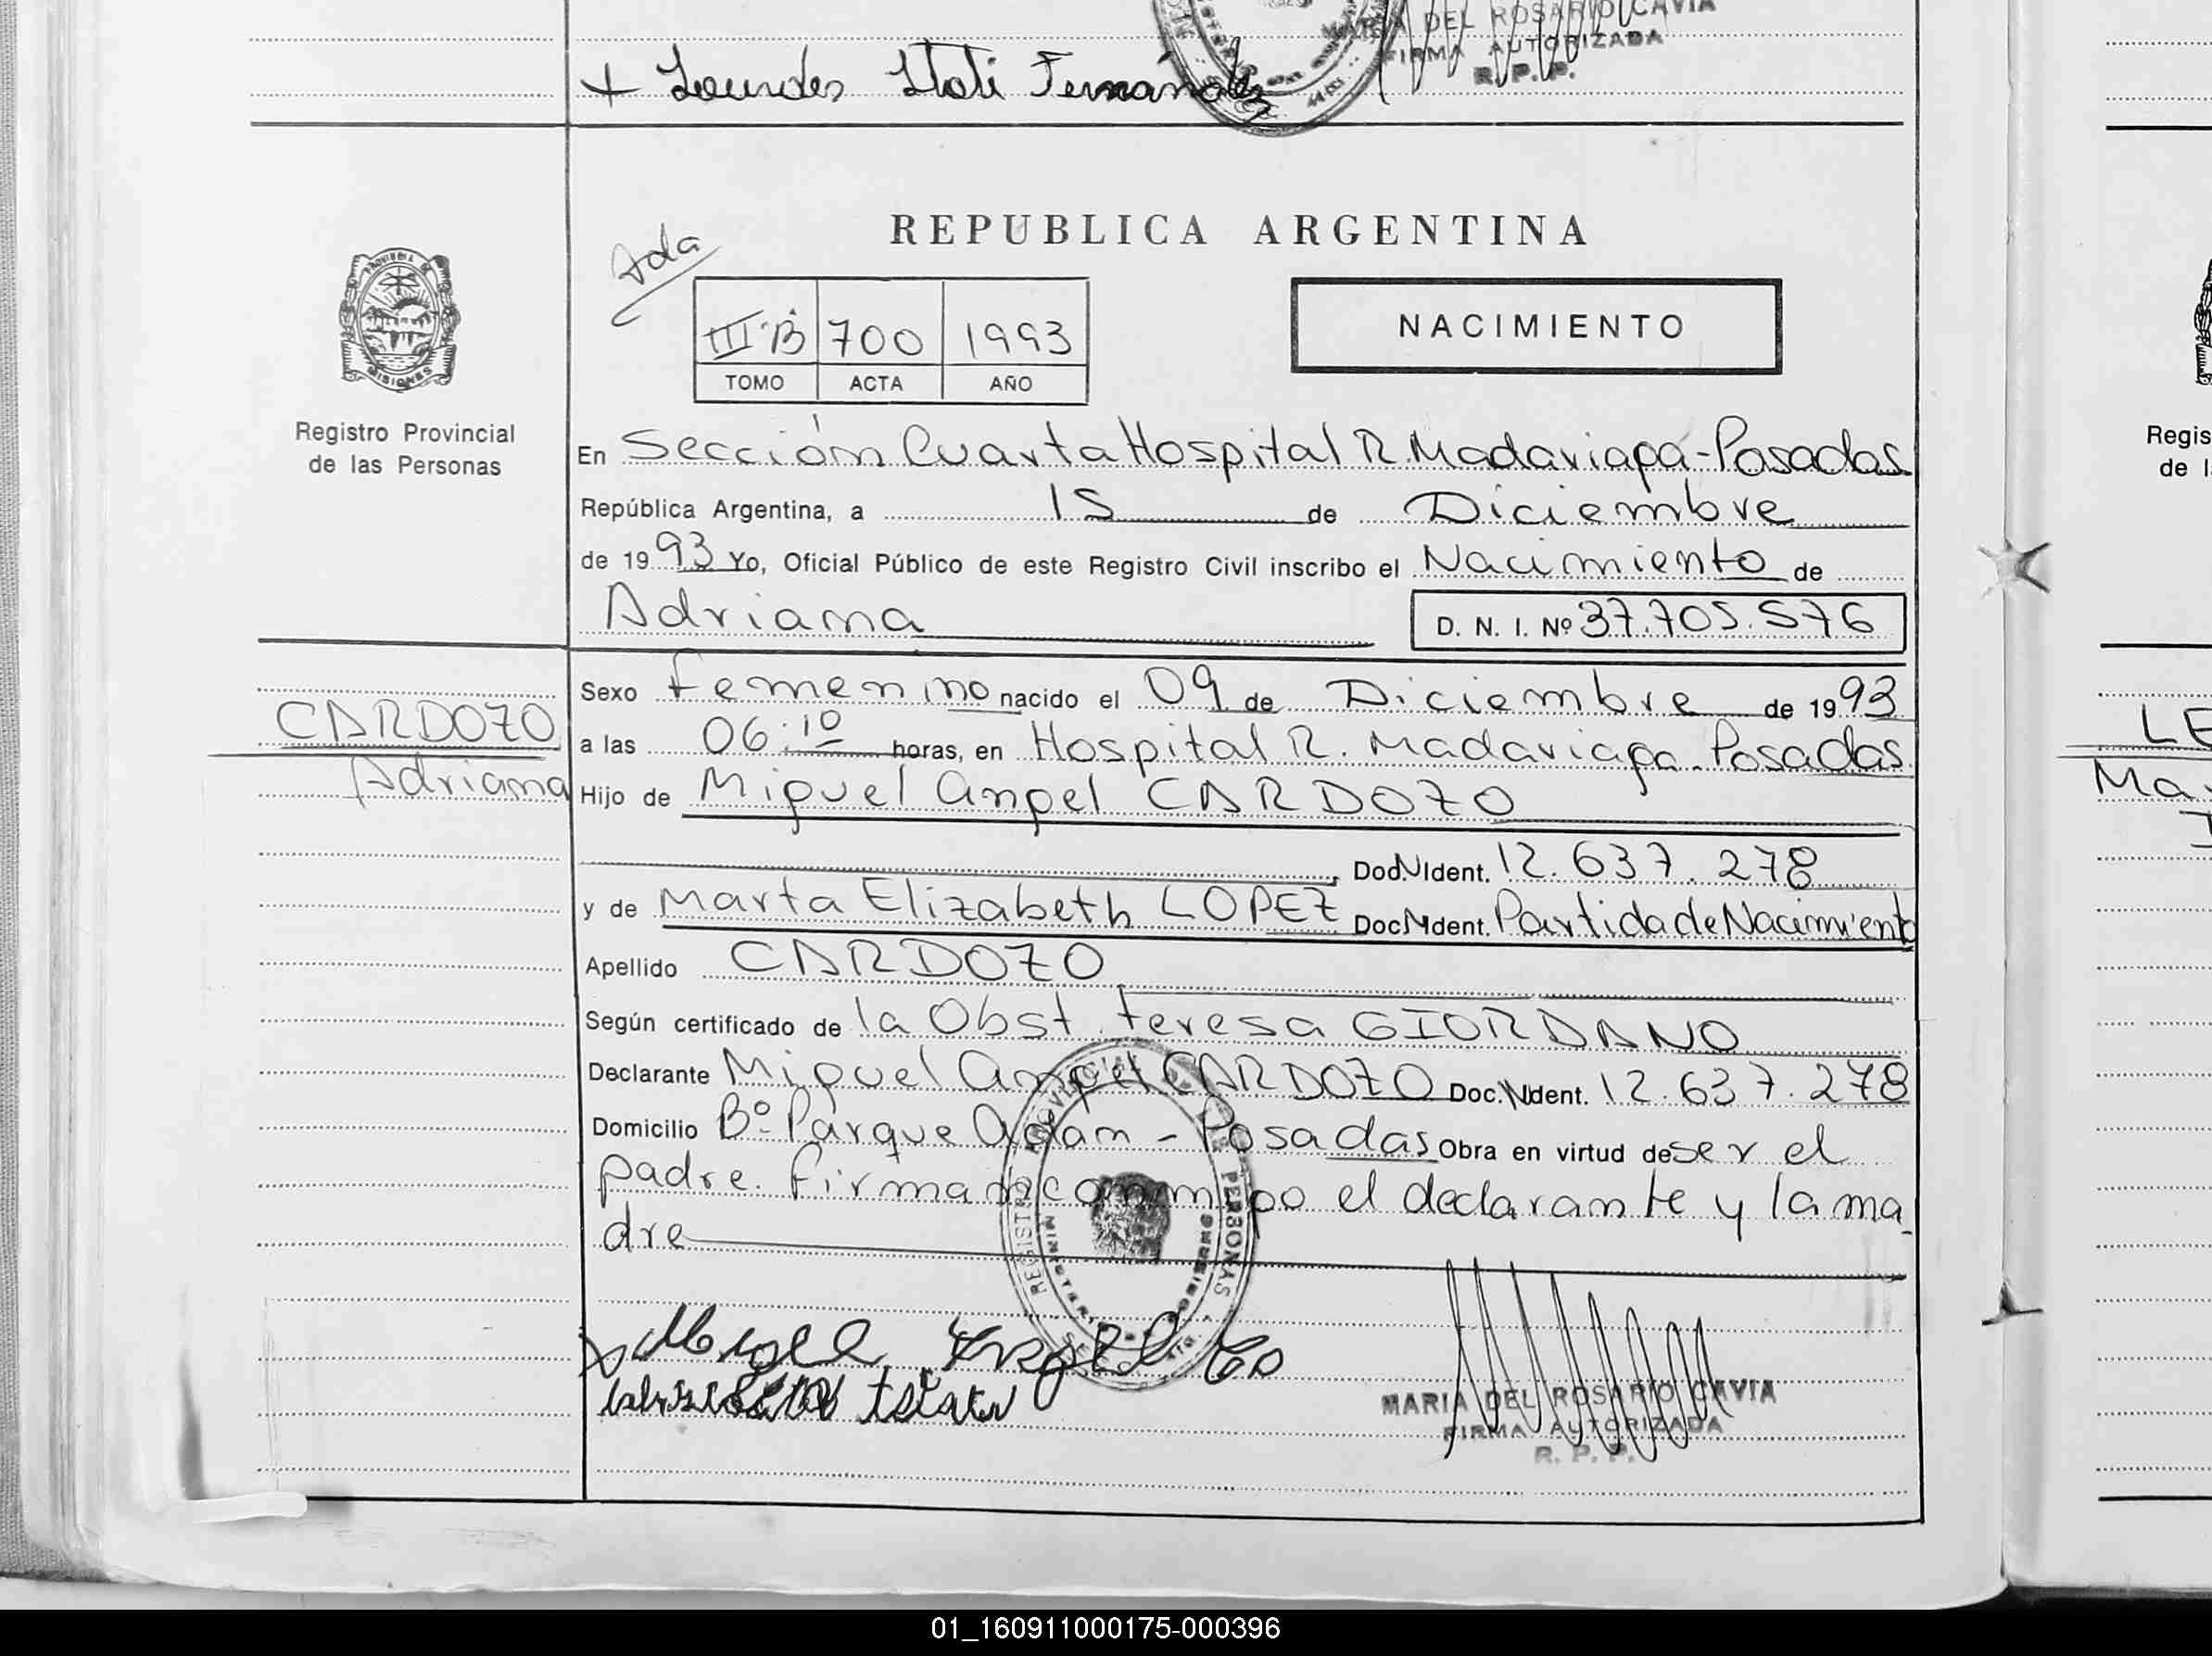 MARIA DEL ROSARIO CAVIA
FIRMA AUTORIZADA
R. P. P.
+ Lourdes Itatí Fernández
REPUBLICA ARGENTINA
PROVINCIA DE
MISIONES
Registro Provincial
de las Personas
III·B 700 1993
TOMO ACTA AÑO
NACIMIENTO
En Sección Cuarta Hospital R. Madariaga - Posadas
República Argentina, a 15 de Diciembre
de 1993 Yo, Oficial Público de este Registro Civil inscribo el Nacimiento de
Adriana D. N. I. Nº 37.705.576
CARDOZO
Adriana
Sexo Femenino nacido el 09 de Diciembre de 1993
a las 06:10 horas, en Hospital R. Madariaga. Posadas
Hijo de Miguel Angel CARDOZO
Doc.N.Ident. 12.637.278
y de Marta Elizabeth LOPEZ Doc.N.Ident. Partida de Nacimiento
Apellido CARDOZO
Según certificado de la Obst. Teresa GIORDANO
Declarante Miguel Angel CARDOZO Doc.N.Ident. 12.637.278
Domicilio Bº Parque Adam - Posadas Obra en virtud de ser el
padre. Firman conmigo el declarante y la ma
dre
MARIA DEL ROSARIO CAVIA
FIRMA AUTORIZADA
R. P. P.
Regis
de l
LE
Ma
01_160911000175-000396